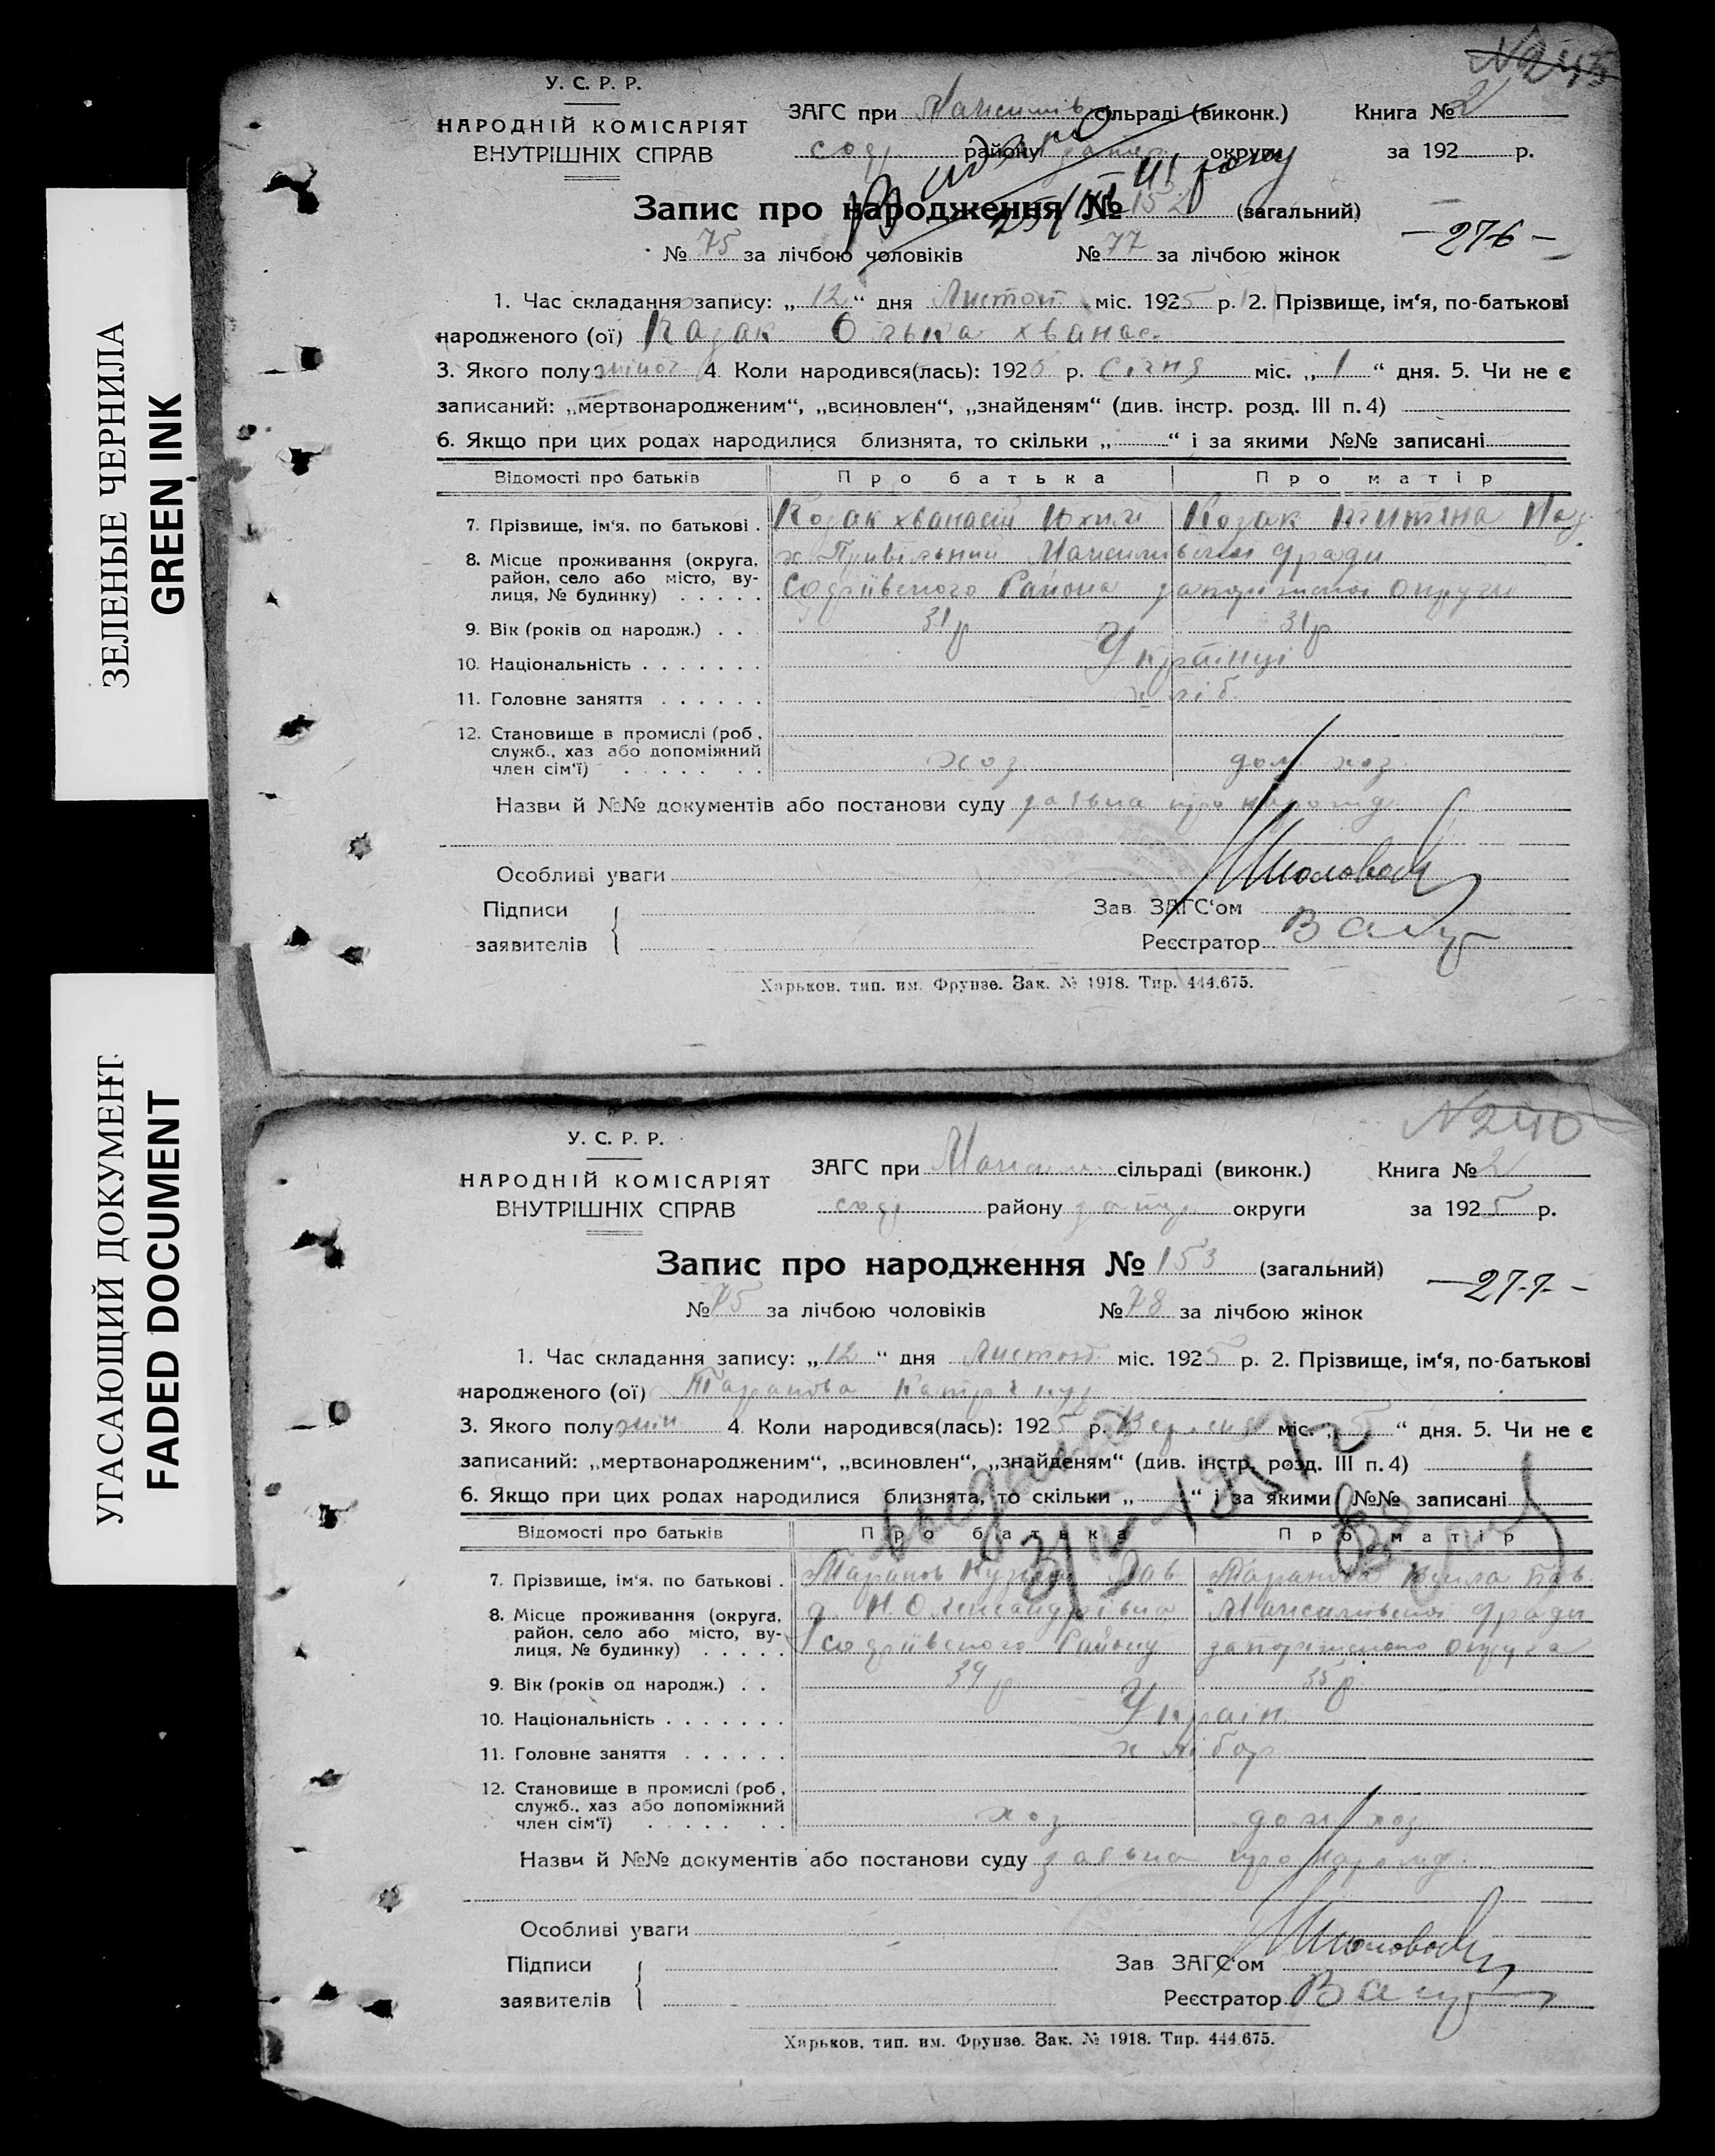 ЗЕЛЕНЫЕ ЧЕРНИЛА
GREEN INK
УГАСАЮЩИЙ ДОКУМЕНТ
FADED DOCUMENT
№ 245
У. С. Р. Р.
НАРОДНІЙ КОМІСАРІЯТ
ВНУТРІШНІХ СПРАВ
ЗАГС при сільраді (виконк.)
района округи
Книга № 2
за 192 р.
Запис про народження № 152 (загальний)
— 276 —
№ 75 за лічбою чоловіків № 77 за лічбою жінок
1. Час складання запису: „ 12 “ дня Листоп міс. 1925 р. 2. Прізвище, ім‘я, по-батькові
народженого (ої) Козак Олька хванас.
3. Якого полу 4. Коли народився(лась): 1925 р. Січня міс. „ 1 “ дня. 5. Чи не є
записаний: „мертвонародженим“, „всиновлен“, „знайденям“ (див. інстр. розд. III п. 4)
6. Якщо при цих родах народилися близнята, то скільки „ “ і за якими №№ записані
Відомості про батьків Про батька Про матір
7. Прізвище, ім‘я. по батькові . Козак хванасій Юхим Козак
8. Місце проживання (округа, район, село або місто, вулиця, № будинку) . . . . . х. Привільний
Района округи
9. Вік (років од народж.) . . 31 р 31 р
10. Національність . . . . . . . Українці
11. Головне заняття . . . . . . хліб.
12. Становище в промислі (роб., служб., хаз або допоміжний член сім‘ї) . . . . . . . хоз дом хоз
Назви й №№ документів або постанови суду заявка про народж.
Особливі уваги
Підписи
заявителів
Зав. ЗАГС‘ом
Реєстратор
Харьков. тип. им. Фрунзе. Зак. № 1918. Тир. 444.675.
№ 240
У. С. Р. Р.
НАРОДНІЙ КОМІСАРІЯТ
ВНУТРІШНІХ СПРАВ
ЗАГС при сільраді (виконк.)
району округи
Книга № 2
за 1925 р.
Запис про народження № 153 (загальний)
— 277 —
№ 75 за лічбою чоловіків № 78 за лічбою жінок
1. Час складання запису: „ 12 “ дня Листоп міс. 1925 р. 2. Прізвище, ім‘я, по-батькові
народженого (ої) Таранова
3. Якого полу жін 4. Коли народився(лась): 1925 р. Вересня міс. „ 5 “ дня. 5. Чи не є
записаний: „мертвонародженим“, „всиновлен“, „знайденям“ (див. інстр. розд. III п. 4)
6. Якщо при цих родах народилися близнята, то скільки „ “ і за якими №№ записані
Відомості про батьків Про батька Про матір
7. Прізвище, ім‘я. по батькові . Таранов Кузьма Сав. Таранова
8. Місце проживання (округа, район, село або місто, вулиця, № будинку) . . . . . Н. Олександрівка
Району
9. Вік (років од народж.) . . 39 р 35 р
10. Національність . . . . . . . Україн.
11. Головне заняття . . . . . . хлібор
12. Становище в промислі (роб., служб., хаз або допоміжний член сім‘ї) . . . . . . . хоз дом хоз
Назви й №№ документів або постанови суду заявка про народж.
Особливі уваги
Підписи
заявителів
Зав. ЗАГС‘ом
Реєстратор
Харьков. тип. им. Фрунзе. Зак. № 1918. Тир. 444.675.